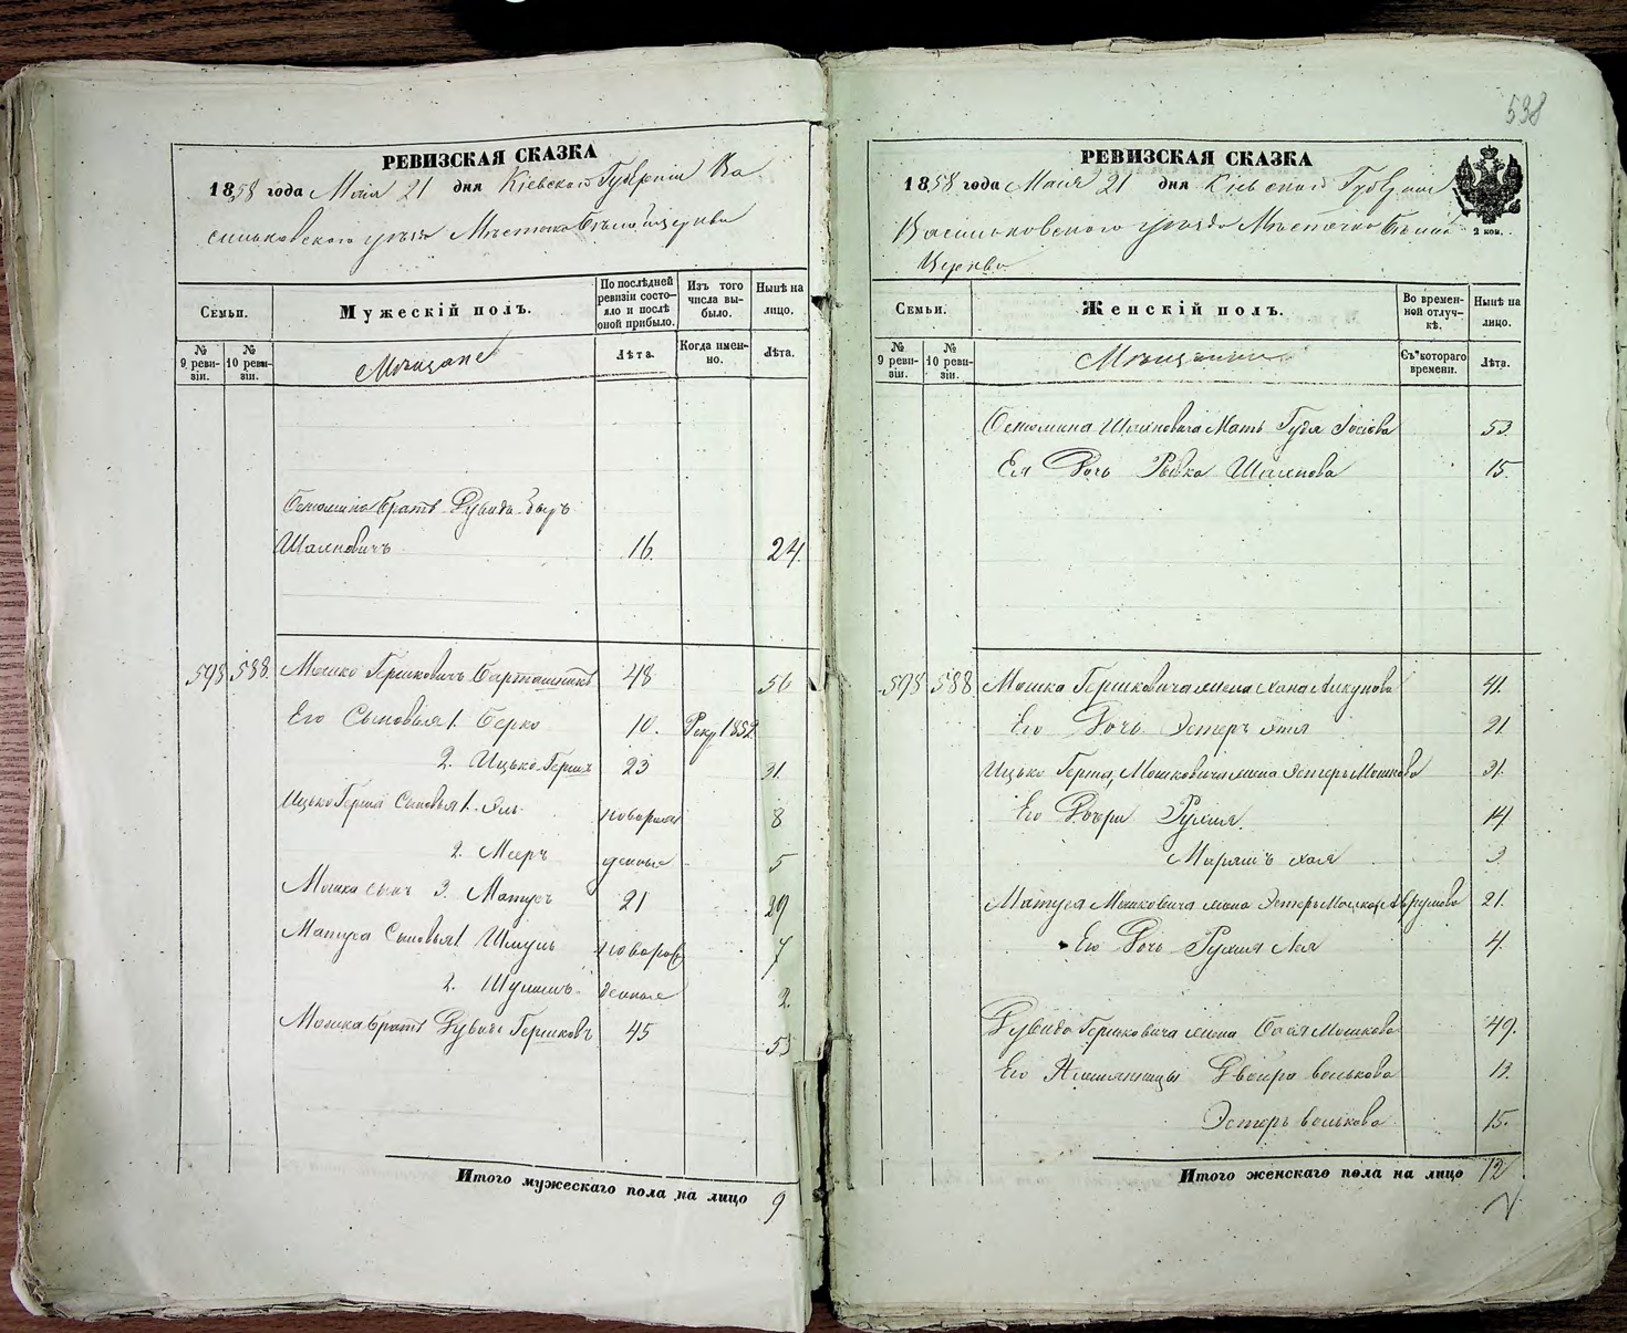 РЕВИЗСКАЯ СКАЗКА
1858 года Маія 21 дня Кіевской Губерніи Ва
сильковского уѣзда Мѣстечка Бѣлой церкви
Семьи.
Мужескій полъ.
По послѣдней ревизіи состояло и послѣ оной прибыло.
Изъ того числа выбыло.
Нынѣ на лицо.
№ 9 ревизіи.
№ 10 ревизіи.
Мѣщане
Лѣта.
Когда именно.
Лѣта.
братъ Дувидъ
Шаиновичъ 16 24
598 588 Мошко Гершковичъ 48 56
Его Сыновья 1. Берко 10. Рекр. 1852
2. Ицько Герш 23 31.
Ицько Герша Сыновья 1. новорож 8
2. Мееръ денные 5
Мошка сынъ 3. Матусъ 21 29
Матуса Сыновья 1 Шмуль новорож 7
2. денные 2.
Мошка братъ Дувидъ Гершковъ 45 53
Итого мужескаго пола на лицо 9
538
РЕВИЗСКАЯ СКАЗКА
1858 года Маія 21 дня Кіевской Губерніи
Васильковского уѣзда Мѣстечка Бѣлой
Церкви
2 коп.
Семьи.
Женскій полъ.
Во временной отлучкѣ.
Нынѣ на лицо.
№ 9 ревизіи.
№ 10 ревизіи.
Мѣщанки
Съ котораго времени.
Лѣта.
Шаиновича Мать 53.
Ея Дочь Рывка Шаинова 15.
598 588 Мошка Гершковича жена Хана 41.
Его Дочь Эстеръ 21
Ицько Герша Мошковича жена Эстеръ Мошкова 31.
Его Дочери Рухля. 14
Маріямъ Хая 3.
Матуса Мошковича жена Эстеръ 21.
Его Дочь Рухля Лея 4.
Дувида Гершковича жена Бася Мошкова 49.
Его Племянницы Двойра Волькова 13.
Эстеръ Волькова 15.
Итого женскаго пола на лицо 12